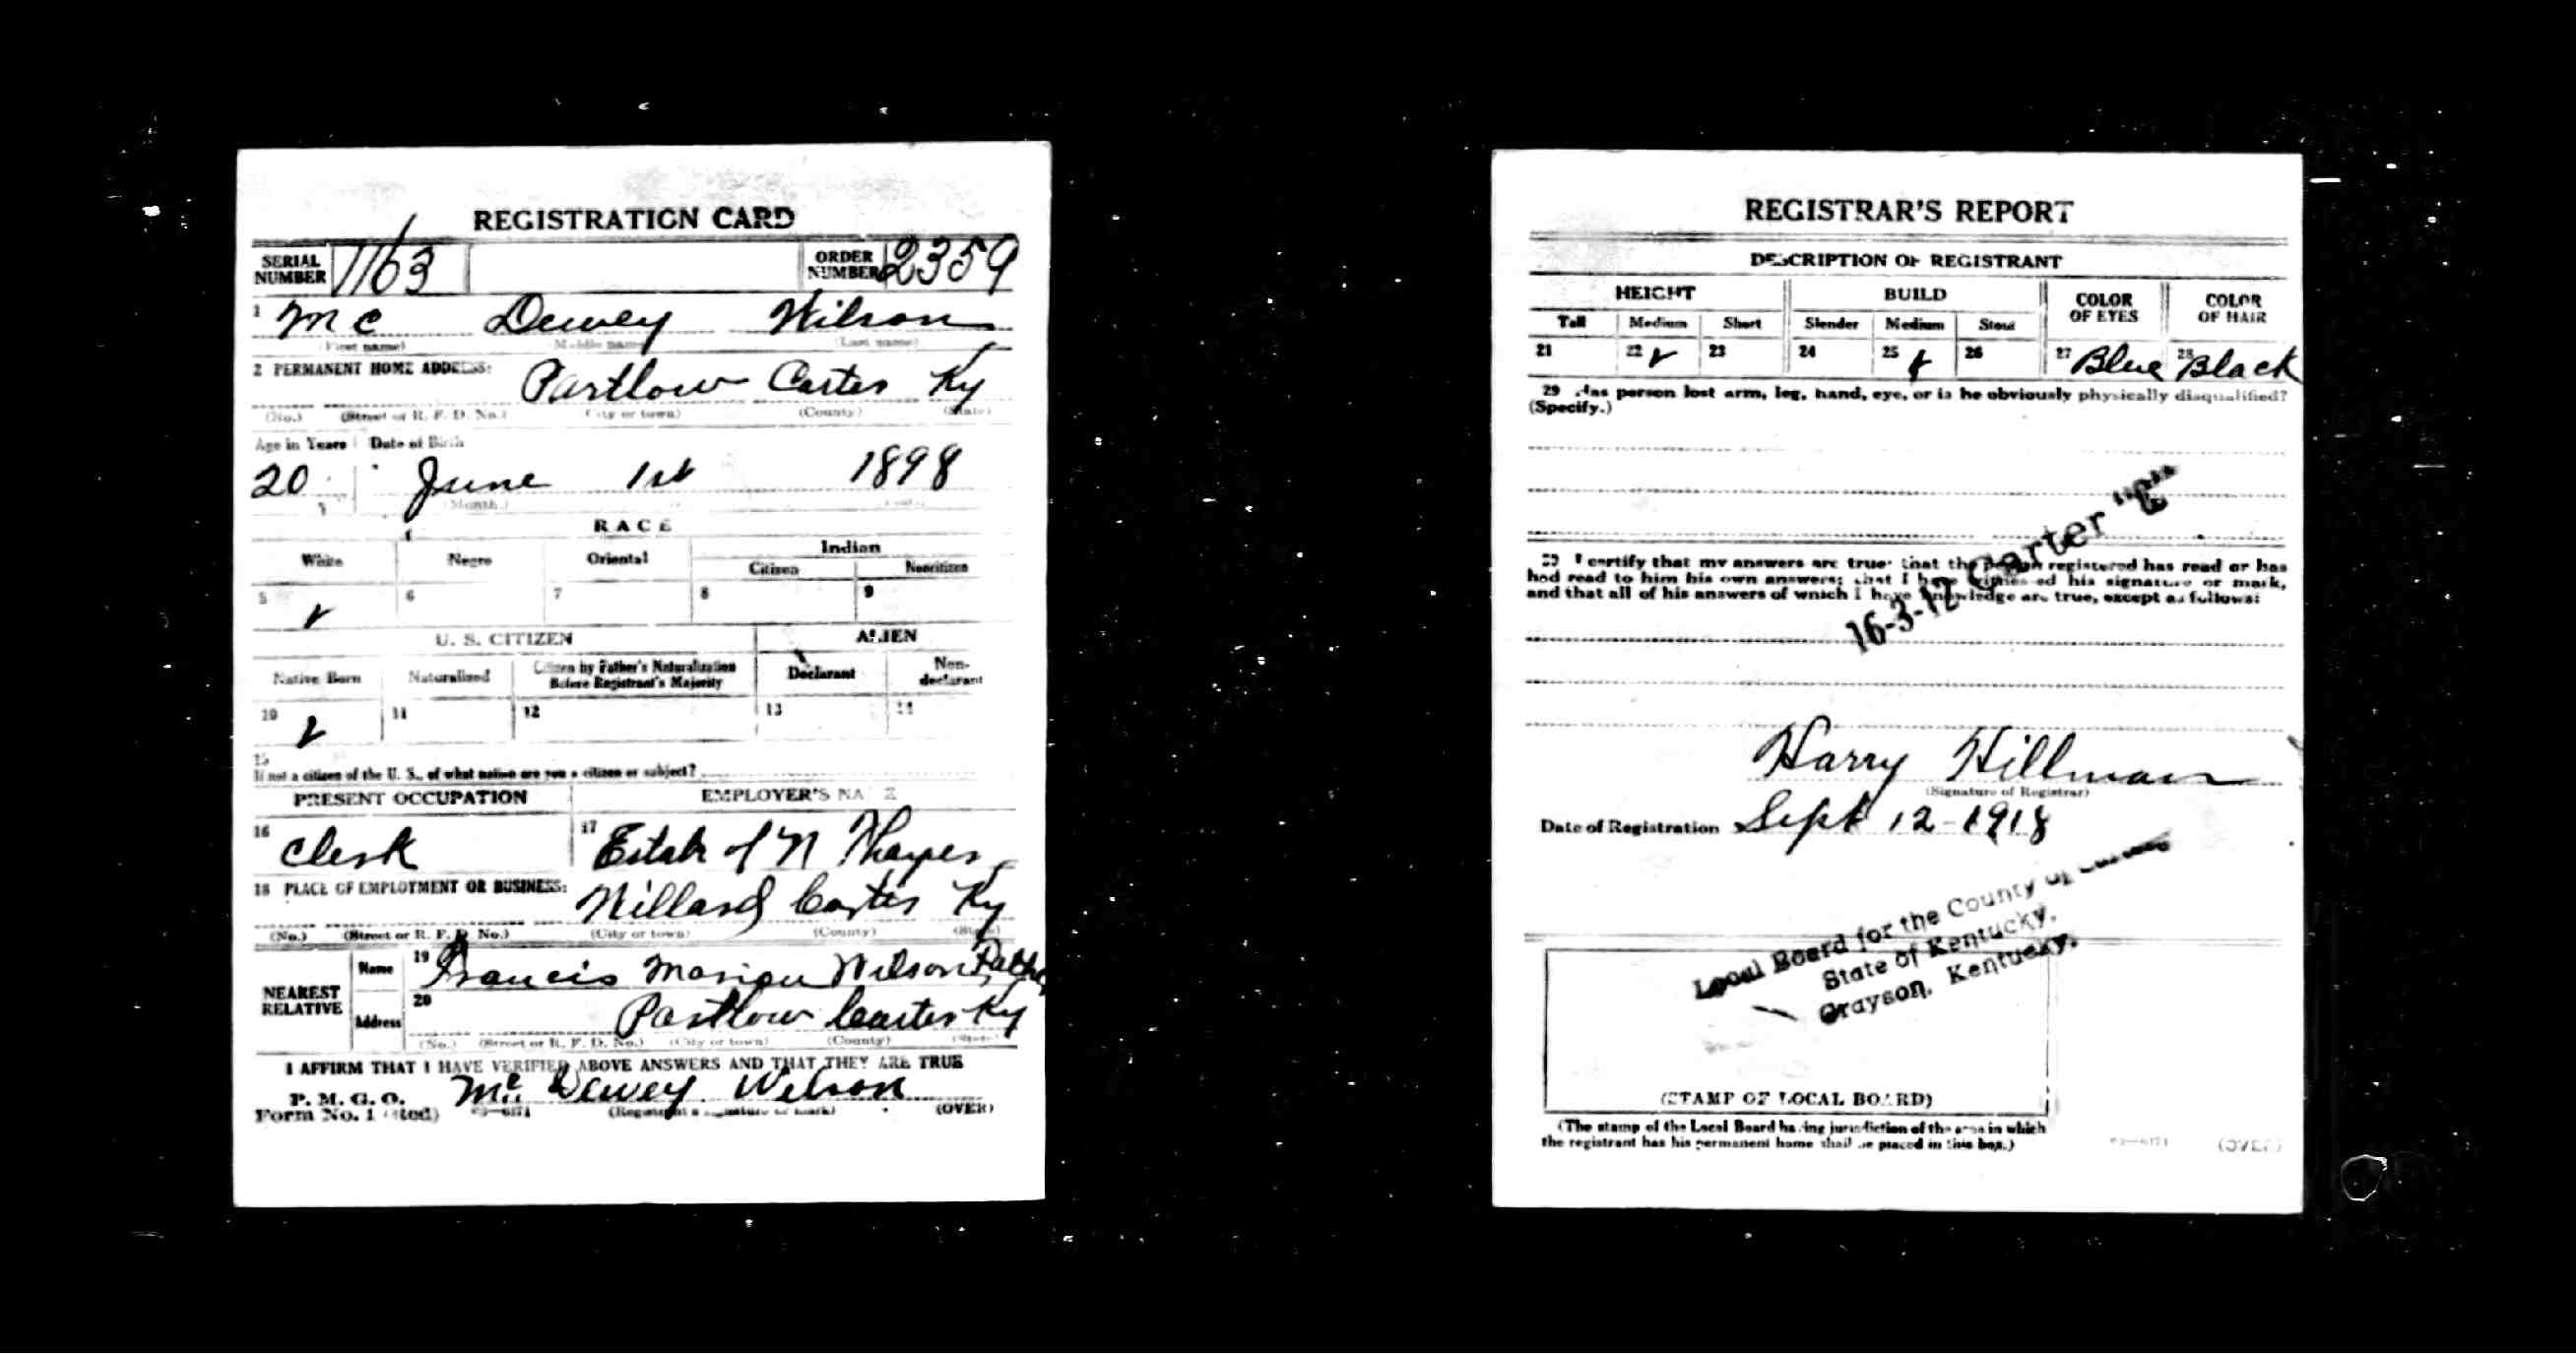 REGISTRATION CARD
SERIAL NUMBER 1163 ORDER NUMBER 2359
1 Mc Dewey Wilson
(First name) (Middle name) (Last name)
2 PERMANENT HOME ADDRESS: Partlow Carter Ky
(No.) (Street or R. F. D. No.) (City or town) (County) (State)
Age in Years Date of Birth
20 June 1st 1898
(Month.)
RACE
White Negro Oriental Indian
Citizen Noncitizen
5 6 7 8 9
U. S. CITIZEN ALIEN
Native Born Naturalized Citizen by Father's Naturalization Before Registrant's Majority Declarant Non-declarant
10 11 12 13 14
15
If not a citizen of the U. S., of what nation are you a citizen or subject?
PRESENT OCCUPATION EMPLOYER'S NA
16 Clerk 17 Estate of N
18 PLACE OF EMPLOYMENT OR BUSINESS:
Willard Carter Ky
(No.) (Street or R. F. D. No.) (City or town) (County) (State)
NEAREST RELATIVE Name 19 Francis Marion Wilson, Father
Address 20 Partlow Carter Ky
(No.) (Street or R. F. D. No.) (City or town) (County) (State)
I AFFIRM THAT I HAVE VERIFIED ABOVE ANSWERS AND THAT THEY ARE TRUE
P. M. G. O.
Form No. 1 (Red) Mc Dewey Wilson
(Registrant's signature or mark) (OVER)
REGISTRAR'S REPORT
DESCRIPTION OF REGISTRANT
HEIGHT BUILD COLOR OF EYES COLOR OF HAIR
Tall Medium Short Slender Medium Stout
21 22 23 24 25 26 27 Blue 28 Black
29 Has person lost arm, leg, hand, eye, or is he obviously physically disqualified?
(Specify.)
30 I certify that my answers are true; that the person registered has read or has
had read to him his own answers; that I have witnessed his signature or mark,
and that all of his answers of which I have knowledge are true, except as follows:
16-3-12 Carter
Harry Hillman
(Signature of Registrar)
Date of Registration Sept 12-1918
Local Board for the County of
State of Kentucky,
Grayson, Kentucky.
(STAMP OF LOCAL BOARD)
(The stamp of the Local Board having jurisdiction of the area in which
the registrant has his permanent home shall be placed in this box.)
(OVER)